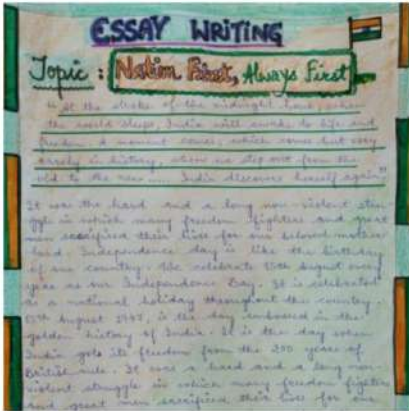 ESSAY WRITING
Topic : Nation First, Always First
" At the stroke of the midnight hour, when
the world sleeps, India will awake to life and
freedom. A moment comes, which comes but very
rarely in history, when we step out from the
old to the new ..... India discovers herself again"
It was the hard and a long non-violent stru-
ggle in which many freedom fighters and great
men sacrificed their lives for our beloved mother
land. Independence day is like the birthday
of our country. We celebrate 15th August every
year as our Independence Day. It is celebrated
as a national holiday throughout the country.
15th August 1947, is the day embossed in the
golden history of India. It is the day when
India gots its freedom from the 200 years of
British rule. It was a hard and a long non-
violent struggle in which many freedom fighters
and great men sacrificed their lives for our